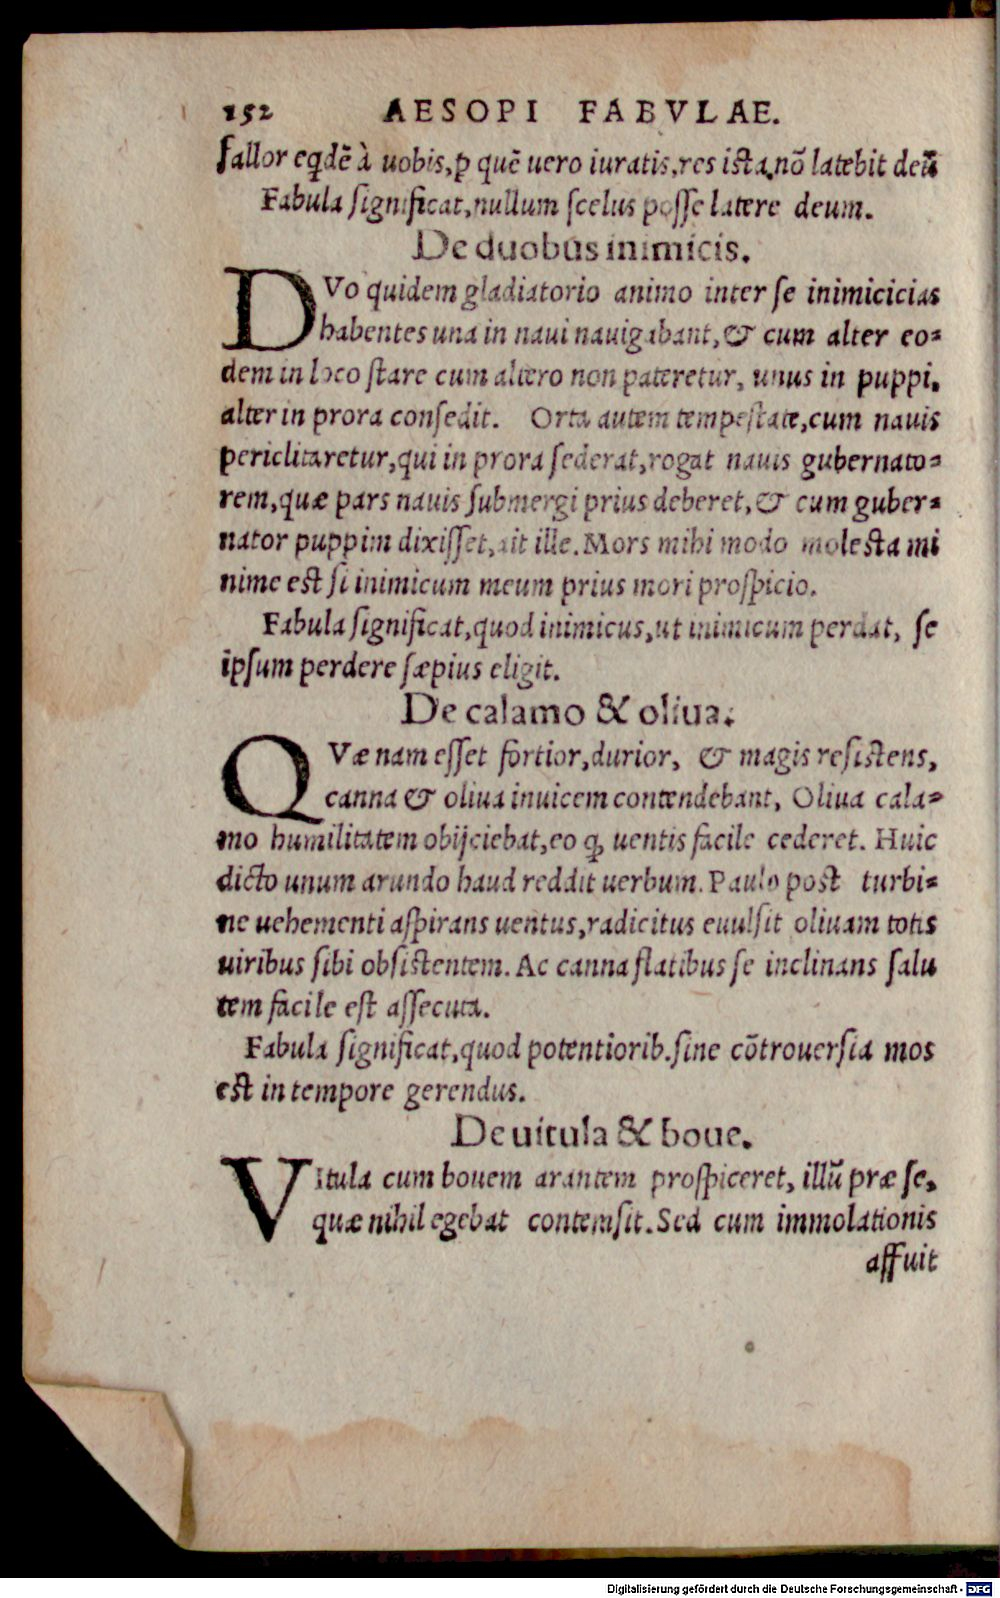 152 AESOPI FABVLAE.
fallor eq̃dẽ à uobis, ꝑ quẽ uero iuratis, res ista, nõ latebit deũ
Fabula significat, nullum scelus posse latere deum.
De duobus inimicis.
DVo quidem gladiatorio animo inter se inimicicias
habentes una in naui nauigabant, & cum alter eo=
dem in loco stare cum altero non pateretur, unus in puppi,
alter in prora consedit. Orta autem tempestate, cum nauis
periclitaretur, qui in prora sederat, rogat nauis gubernato=
rem, quæ pars nauis submergi prius deberet, & cum guber=
nator puppim dixisset, ait ille. Mors mihi modo molesta mi
nime est si inimicum meum prius mori prospicio.
Fabula significat, quod inimicus, ut inimicum perdat, se
ipsum perdere sæpius eligit.
De calamo & oliua.
QVæ nam esset fortior, durior, & magis resistens,
canna & oliua inuicem contendebant, Oliua cala=
mo humilitatem obijciebat, eo ꝙ uentis facile cederet. Huic
dicto unum arundo haud reddit uerbum. Paulo post turbi=
ne uehementi aspirans uentus, radicitus euulsit oliuam totis
uiribus sibi obsistentem. Ac canna flatibus se inclinans salu
tem facile est assecuta.
Fabula significat, quod potentiorib. sine cõtrouersia mos
est in tempore gerendus.
De uitula & boue.
VItula cum bouem arantem prospiceret, illũ præ se,
quæ nihil egebat contemsit. Sed cum immolationis
affuit
Digitalisierung gefördert durch die Deutsche Forschungsgemeinschaft - DFG